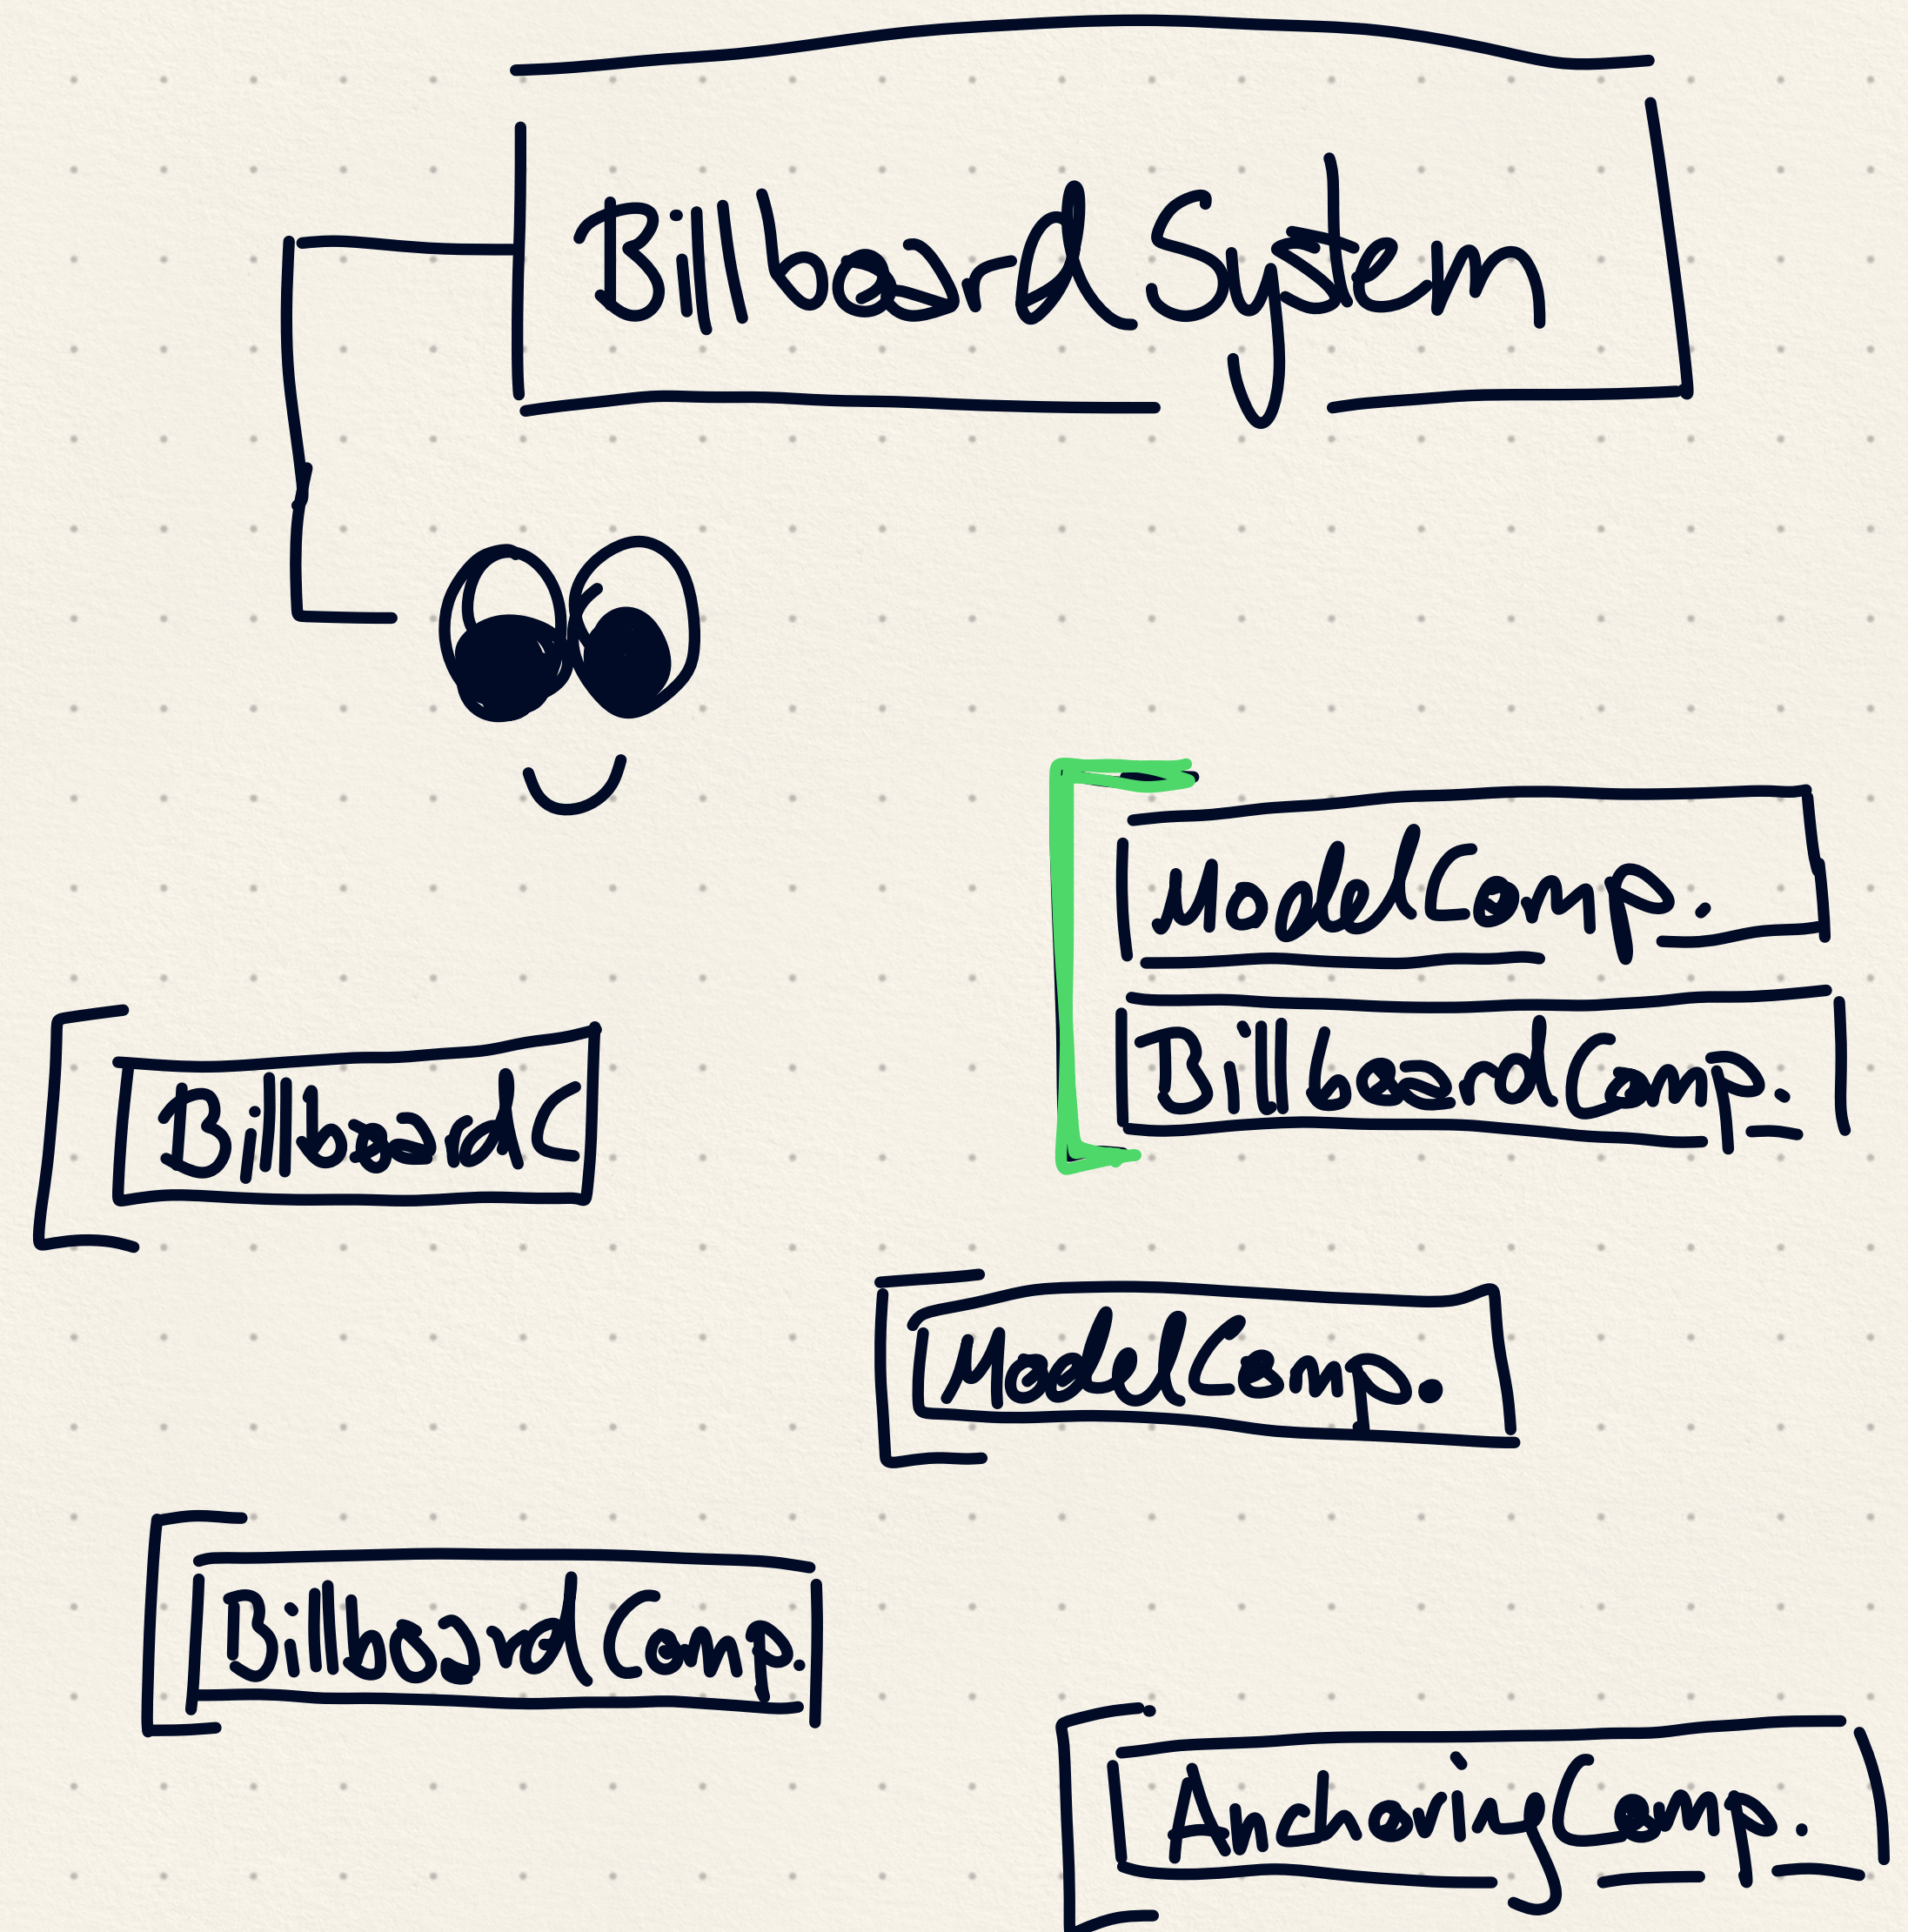 Billboard System
ModelComp.
BillboardComp.
BillboardC
ModelComp.
BillboardComp.
AnchoringComp.